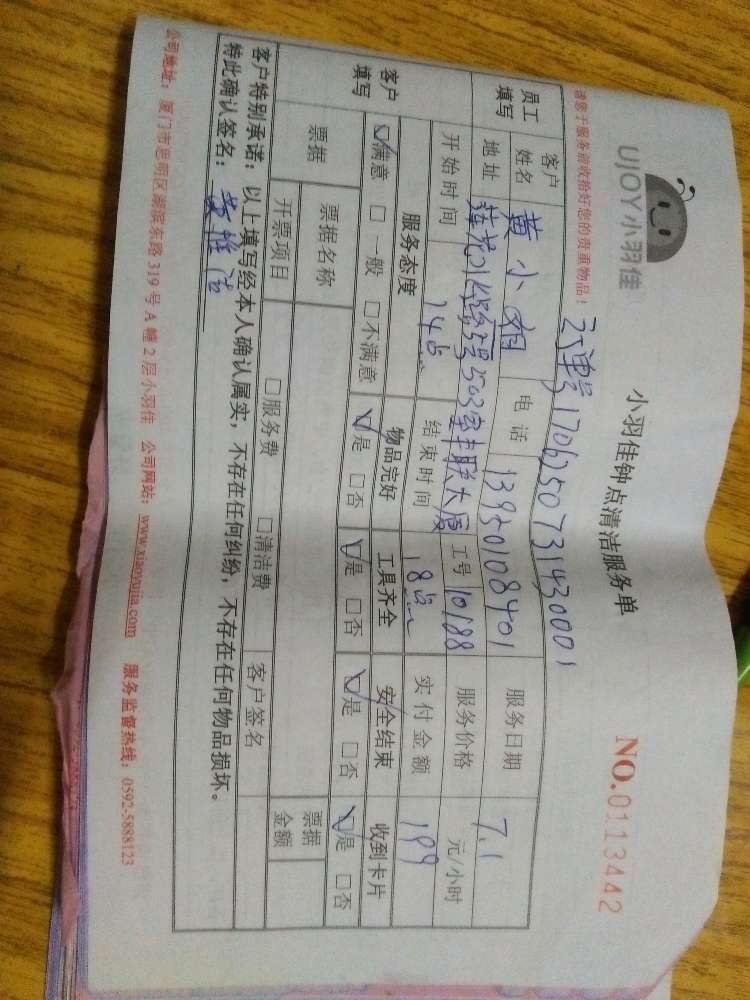 UJOY小羽佳
小羽佳钟点清洁服务单
NO.0113442
请您于服务前收拾好您的贵重物品！
170625073143000 1
员工填写
客户姓名 黄小姐 电话 13950108401 服务日期 7.1
地址 503室中联大厦 工号 10188 服务价格 元/小时
开始时间 14点 结束时间 18点 实付金额 199
客户填写
服务态度 物品完好 工具齐全 安全结束 收到卡片
☑满意 □一般 □不满意 ☑是 □否 ☑是 □否 ☑是 □否 ☑是 □否
票据 票据名称 □服务费 □清洁费 客户签名 票据金额
开票项目
客户特别承诺：以上填写经本人确认属实，不存在任何纠纷，不存在任何物品损坏。
特此确认签名：
公司地址：厦门市思明区湖滨东路319号A幢2层小羽佳 公司网站：www.xiaoyujia.com 服务监督热线：0592-5888123